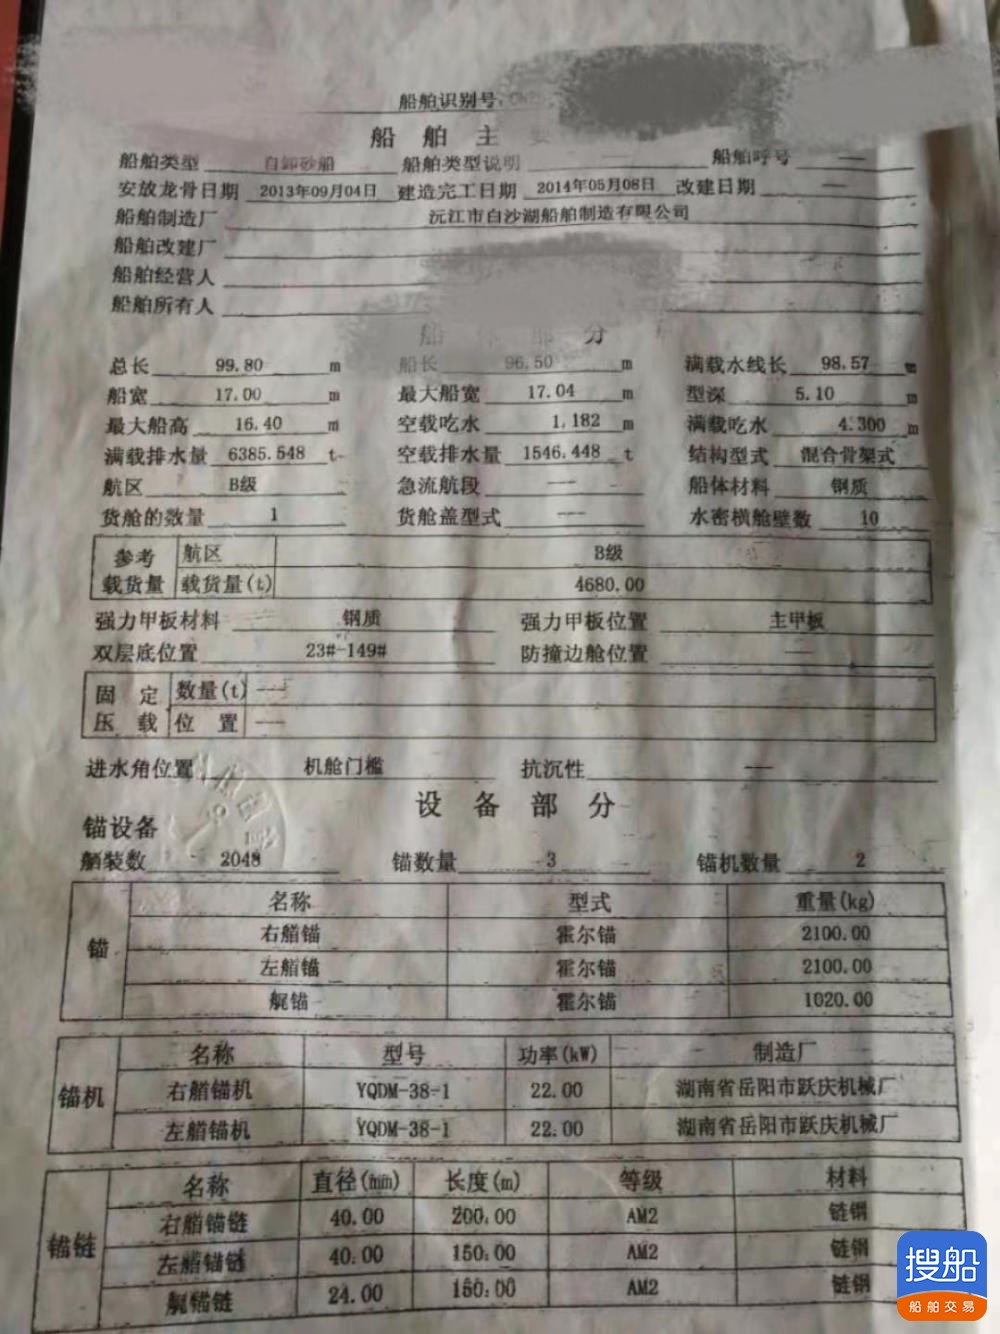 船舶识别号
船 舶 主 要
船舶类型 自卸砂船 船舶类型说明 — 船舶呼号 —
安放龙骨日期 2013年09月04日 建造完工日期 2014年05月08日 改建日期 —
船舶制造厂 沅江市白沙湖船舶制造有限公司
船舶改建厂
船舶经营人
船舶所有人
船 体 部 分
总长 99.80 m 船长 96.50 m 满载水线长 98.57 m
船宽 17.00 m 最大船宽 17.04 m 型深 5.10 m
最大船高 16.40 m 空载吃水 1.182 m 满载吃水 4.300 m
满载排水量 6385.548 t 空载排水量 1546.448 t 结构型式 混合骨架式
航区 B级 急流航段 — 船体材料 钢质
货舱的数量 1 货舱盖型式 — 水密横舱壁数 10
参考载货量 航区 B级
载货量(t) 4680.00
强力甲板材料 钢质 强力甲板位置 主甲板
双层底位置 23#-149# 防撞边舱位置 —
固定压载 数量(t) —
位 置 —
进水角位置 机舱门槛 抗沉性 —
设 备 部 分
锚设备
舾装数 2048 锚数量 3 锚机数量 2
锚 名称 型式 重量(kg)
右艏锚 霍尔锚 2100.00
左艏锚 霍尔锚 2100.00
艉锚 霍尔锚 1020.00
锚机 名称 型号 功率(kW) 制造厂
右艏锚机 YQDM-38-1 22.00 湖南省岳阳市跃庆机械厂
左艏锚机 YQDM-38-1 22.00 湖南省岳阳市跃庆机械厂
锚链 名称 直径(mm) 长度(m) 等级 材料
右艏锚链 40.00 200.00 AM2 链钢
左艏锚链 40.00 150.00 AM2 链钢
艉锚链 24.00 150.00 AM2 链钢
搜船
船舶交易